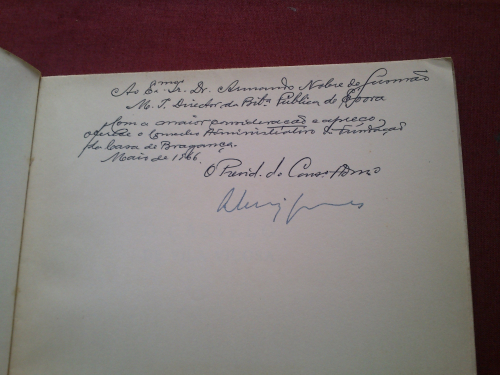 Ao Exmo. Sr. Dr. Armando Nobre de Gusmão
M. I. Director da Bibª Pública de Évora
Com a maior consideração e apreço
oferece o Conselho Administrativo da Fundação
da Casa de Bragança.
Maio de 1966.
O Presid. do Cons. Admo